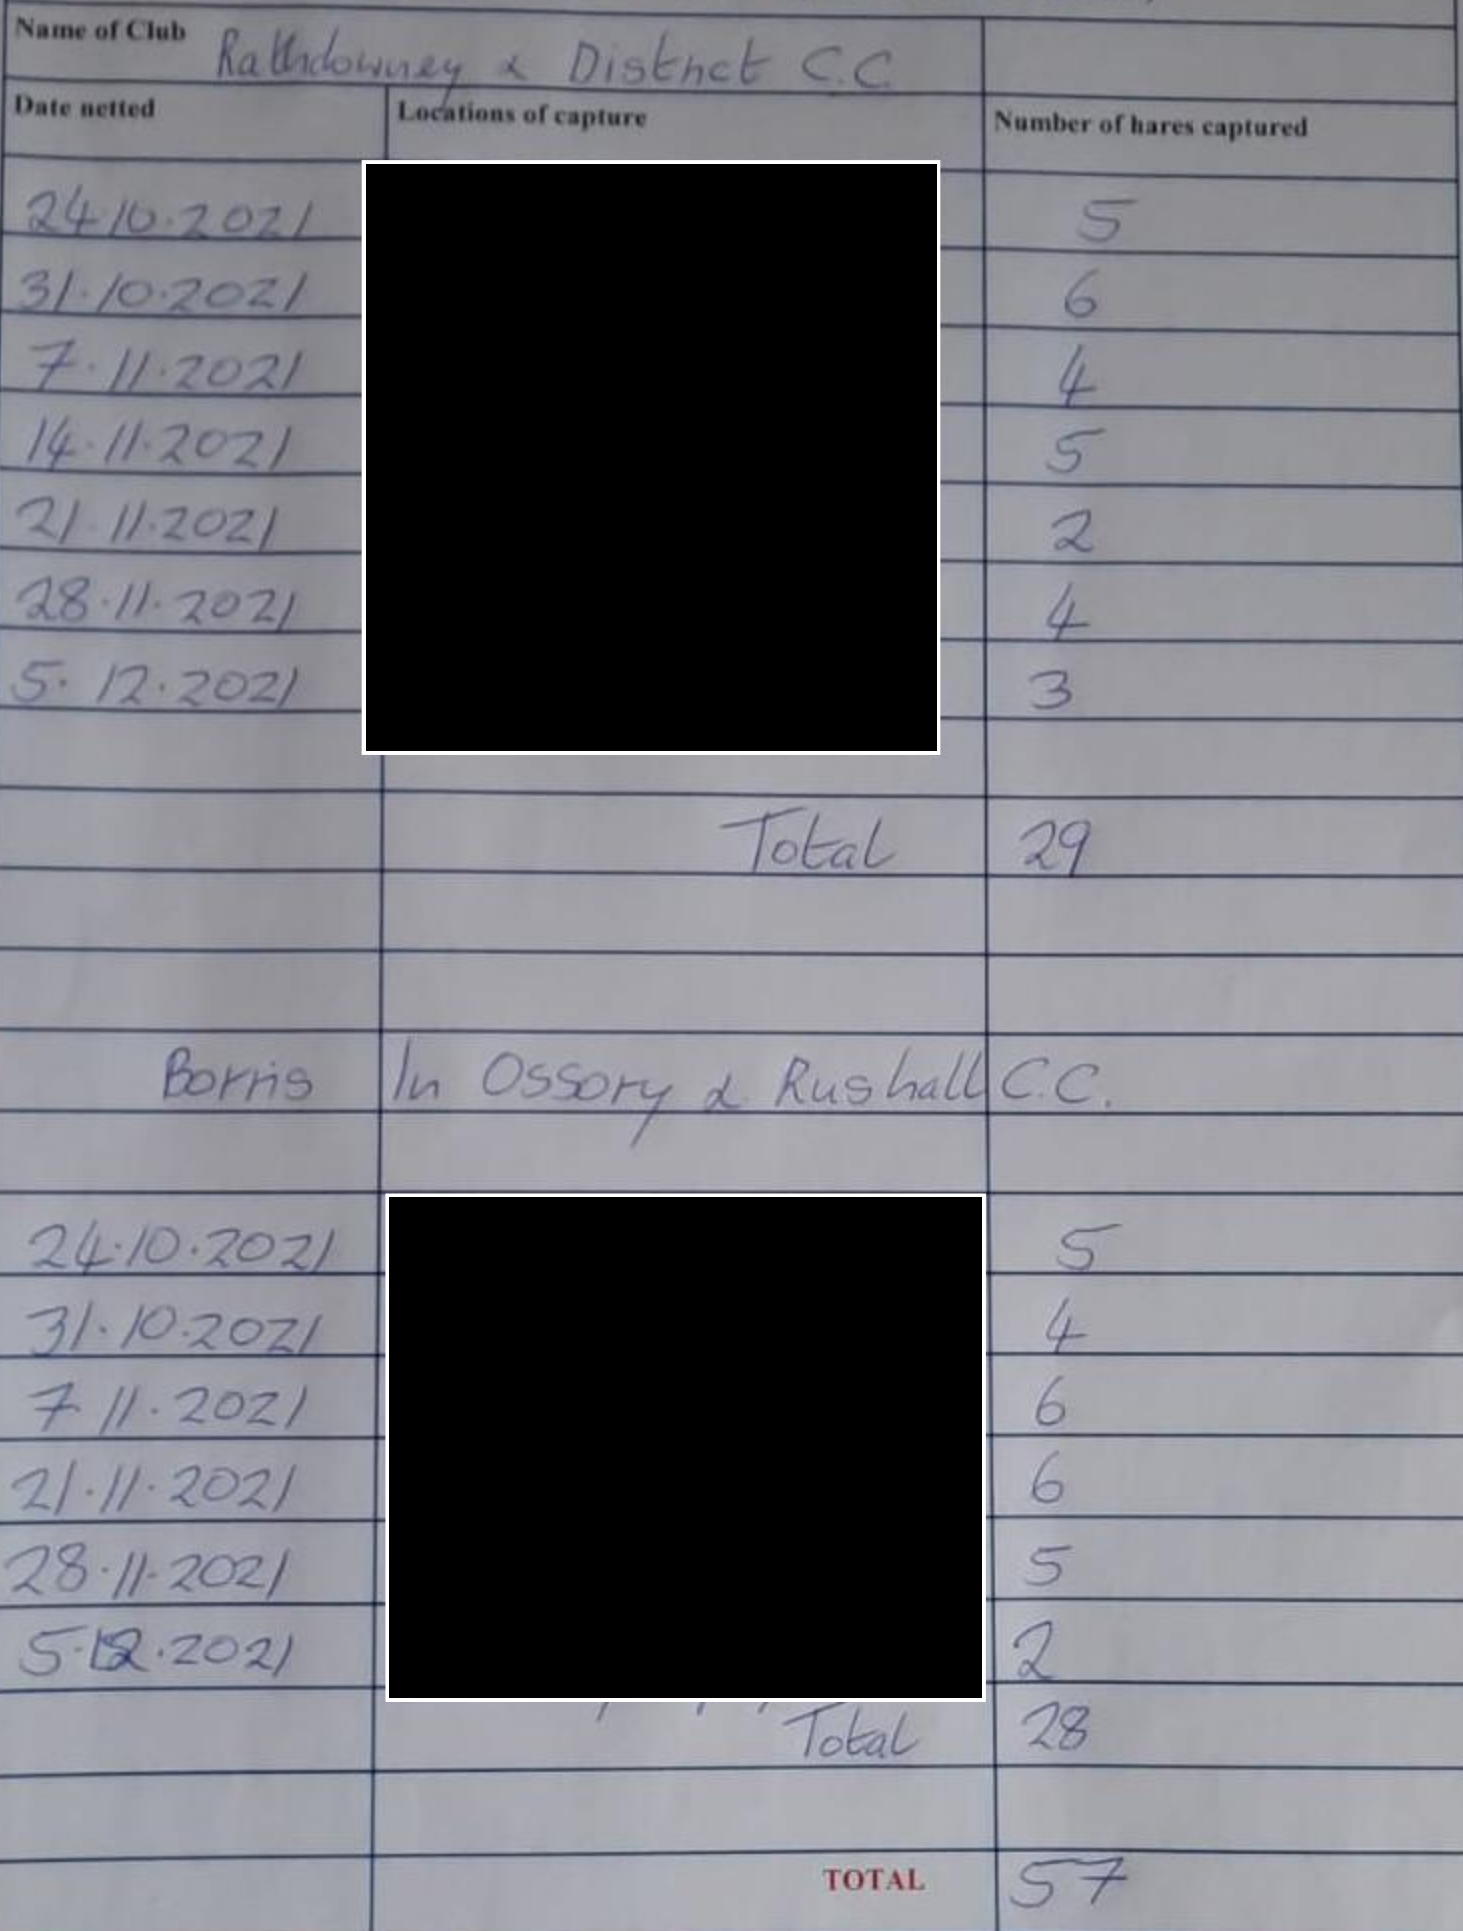 Name of Club Rathdowney & District C.C.
Date netted Locations of capture Number of hares captured
24.10.2021 5
31.10.2021 6
7.11.2021 4
14.11.2021 5
21.11.2021 2
28.11.2021 4
5.12.2021 3
Total 29
Borris In Ossory & Rushall C.C.
24.10.2021 5
31.10.2021 4
7.11.2021 6
21.11.2021 6
28.11.2021 5
5.12.2021 2
Total 28
TOTAL 57